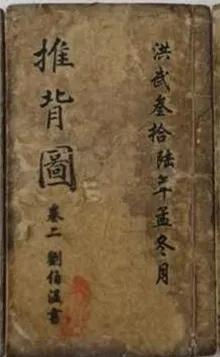 洪武叁拾陸年孟冬月
推背圖
卷二 劉伯温書